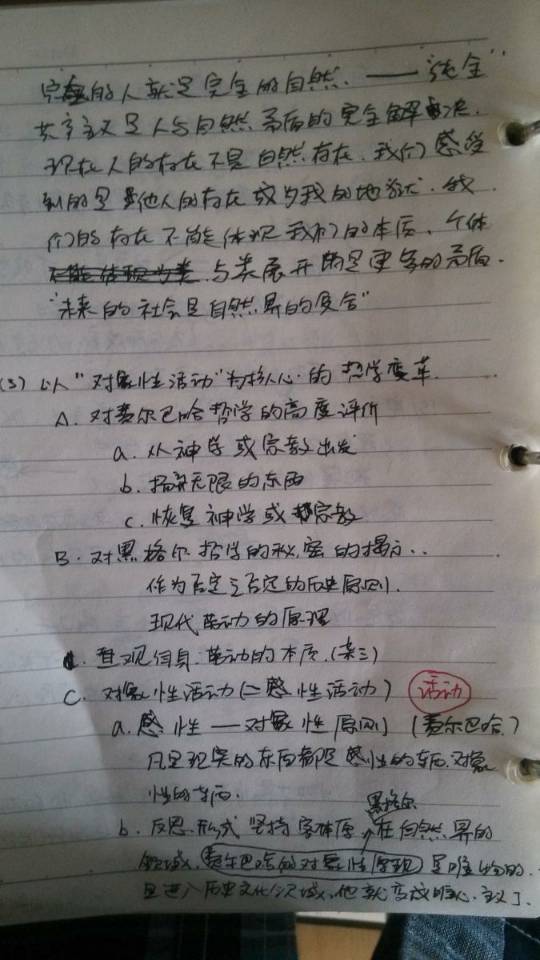 完整的人就是完全的自然.——"完全"
共产主义是人与自然矛盾的完全解决.
现在人的存在不是自然存在.我们感觉
到的是其他人的存在成为我的地狱.我
们的存在不能体现我们的本质.个体
与类展开的是更多的矛盾.
"未来的社会是自然界的复合"
(3) 以"对象性活动"为核心的哲学变革.
A. 对费尔巴哈哲学的高度评价
a. 从神学或宗教出发
b. 无限的东西
c. 恢复神学或宗教
B. 对黑格尔哲学的秘密的揭示..
作为否定之否定的历史原则.
现代劳动的原理
直观自身.劳动的本质.(条三)
C. 对象性活动(=感性活动) 活动
a. 感性——对象性原则 (费尔巴哈)
凡是现实的东西都是感性的东西.对象
性的东西.
黑格尔
b. 反思形式 坚持客体原 在自然界的
领域.费尔巴哈的对象性原理是唯物的.
且进入历史文化领域,他就变成唯心主义了.